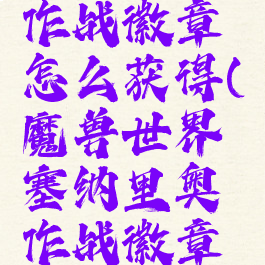 作战徽章
怎么获得(
魔兽世界
塞纳里奥
作战徽章